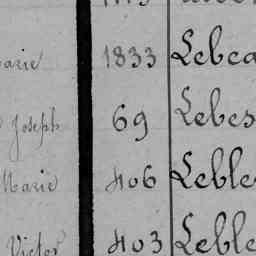 arie 1833 Lebea
Joseph 69 Lebes
Marie 406 Leble
Victor 403 Leble